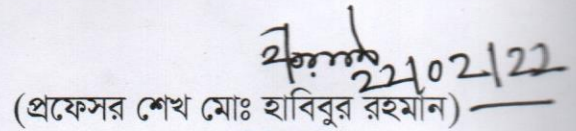 22/02/22
(প্রফেসর শেখ মোঃ হাবিবুর রহমান)